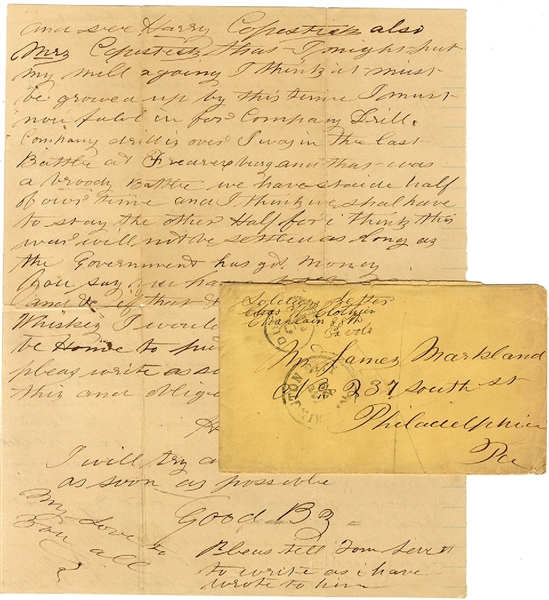 and see Harry Copestick also
Mrs Copestick that I might put
my mill agoing I think it must
be growed up by this time I must
now fall in for Company Drill.
Company drill is over I was in the last
Battle at and that was
a Battle we have staide half
of our time and I think we shal have
to stay the other Half for i think this
war will not be setteled as long as
the Government has got money
you say you ha
and if that
Whiskey I would
be Home to
pleas write as s
this and oblige
H
I will try a
as soon as possible
Good By
My Love to
You all
Pleas tell Tom
to write as i have
wrote to him
Soldiers Letter
Chaplain 88th
Pa Vols
Mr James Markland
No 237 South St
Philadelphia
Pa